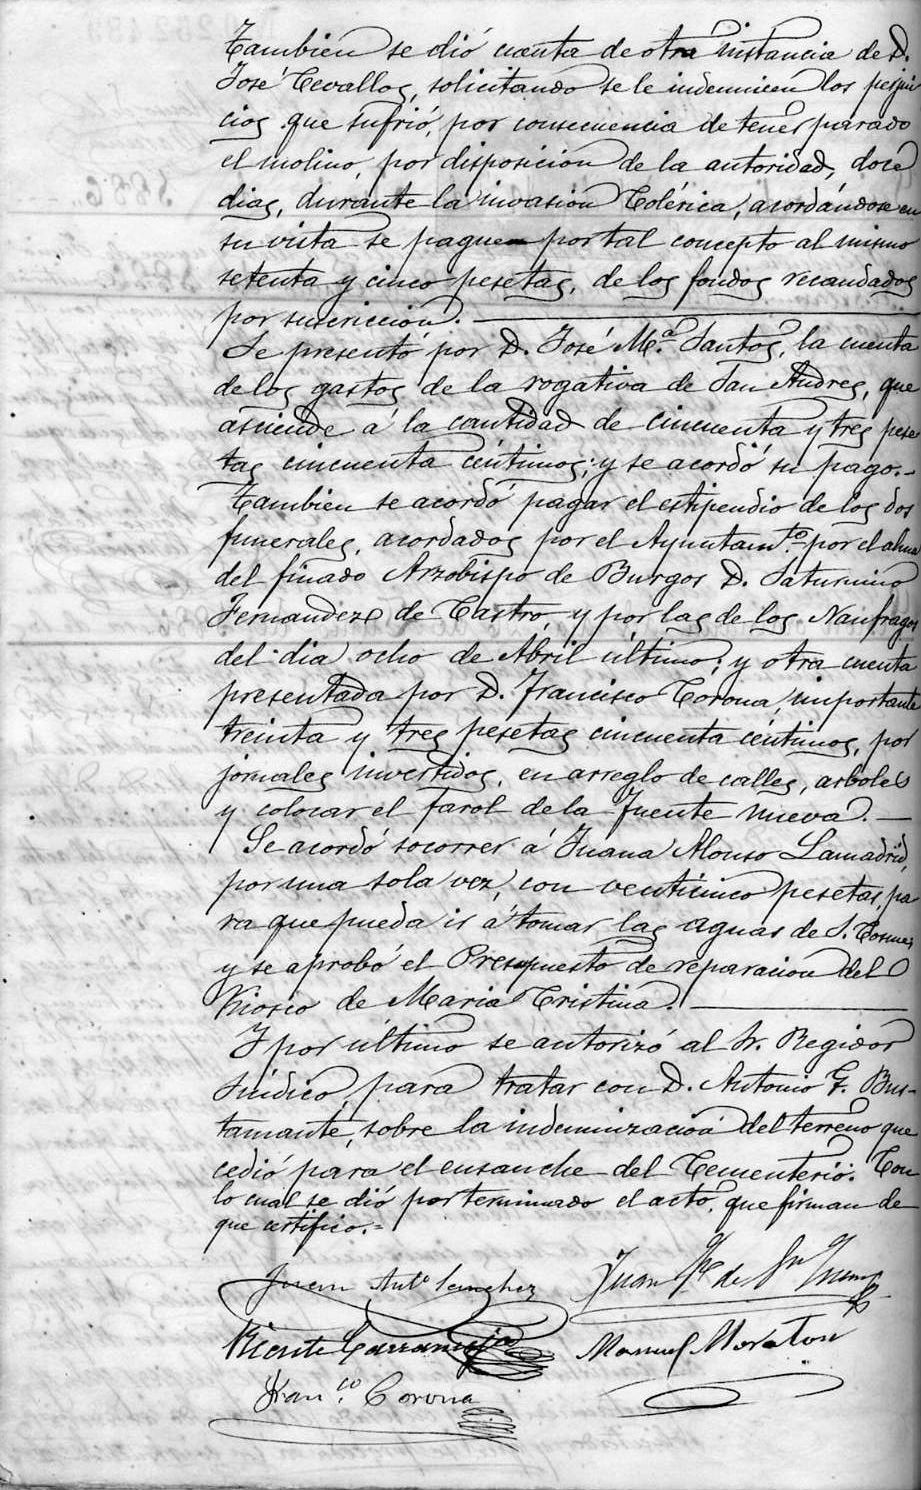 También se dió cuenta de otra instancia de D.
José Cevallos, solicitando se le indemnicen los perjui
cios que sufrió, por consecuencia de tener parado
el molino, por disposición de la autoridad, doce
dias, durante la invasión Colérica, acordándose en
su vista se pague por tal concepto al mismo
setenta y cinco pesetas, de los fondos recaudados
por suscricción.
Se presentó por D. José M.ª Santos, la cuenta
de los gastos de la rogativa de San Andres, que
asciende á la cantidad de cincuenta y tres pese
tas cincuenta céntimos; y se acordó su pago.-
Tambien se acordó pagar el estipendio de los dos
funerales, acordados por el Ayuntamto. por el alma
del finado Arzobispo de Burgos D. Saturnino
Fernandez de Castro, y por las de los Naufragos
del dia ocho de Abril último; y otra cuenta
presentada por D. Francisco Corona, importante
treinta y tres pesetas cincuenta céntimos, por
jornales invertidos, en arreglo de calles, arboles
y colocar el farol de la Fuente nueva. —
Se acordó socorrer á Juana Alonso Lamadrid,
por una sola vez, con venticinco pesetas, pa
ra que pueda ir á tomar las aguas de S. Cosme;
y se aprobó el Presupuesto de reparacion del
Kiosco de Maria Cristina.
Y por último se autorizó al Sr. Regidor
Síndico, para tratar con D. Antonio G. Bus-
tamante, sobre la indemnización del terreno que
cedió para el ensanche del Cementerio. Con
lo cual se dió por terminado el acto, que firman de
que certifico.=
Juan Anto. Sanchez Juan
Vicente Manuel Moraton
Franco. Corona